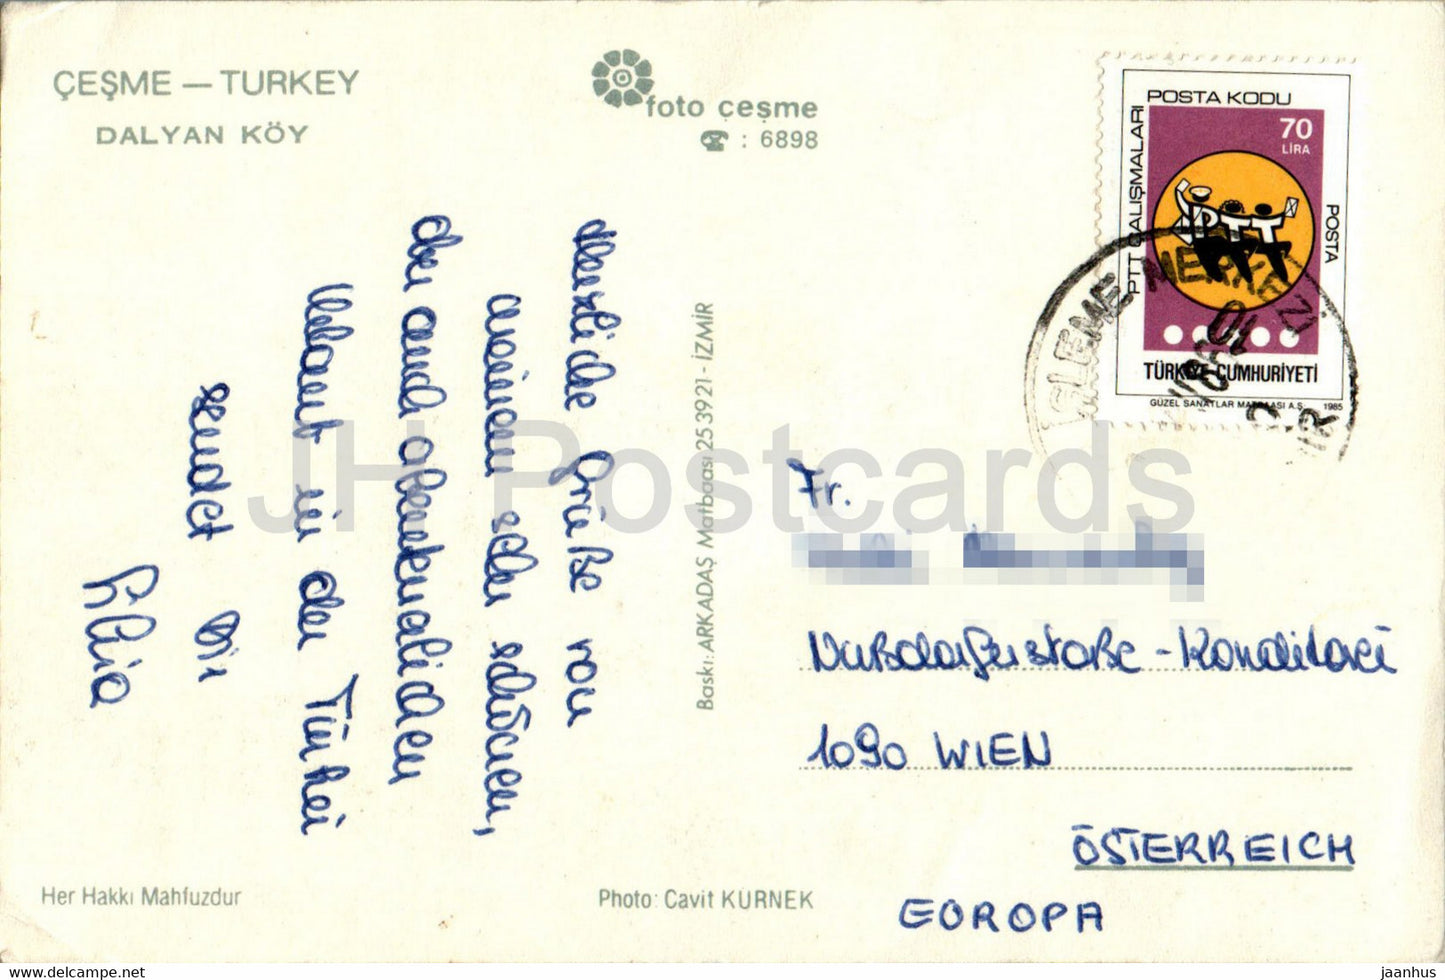 ÇEŞME — TURKEY
DALYAN KÖY
foto çeşme
☎ : 6898
POSTA KODU
PTT ÇALIŞMALARI
70
LİRA
PTT
POSTA
TÜRKİYE CUMHURİYETİ
GÜZEL SANATLAR MATBAASI A.Ş. 1985
İŞLEME MERKEZİ
Herzliche Grüße von
meinem sehr schönen,
aber auch abenteuerlichen
Urlaub in der Türkei
sendet Dir
Silvia
Baskı: ARKADAŞ Matbaası 253921 - İZMİR
Fr.
Konditorei
1090 WIEN
ÖSTERREICH
EUROPA
Her Hakkı Mahfuzdur
Photo: Cavit KÜRNEK
JH Postcards
www.delcampe.net
jaanhus